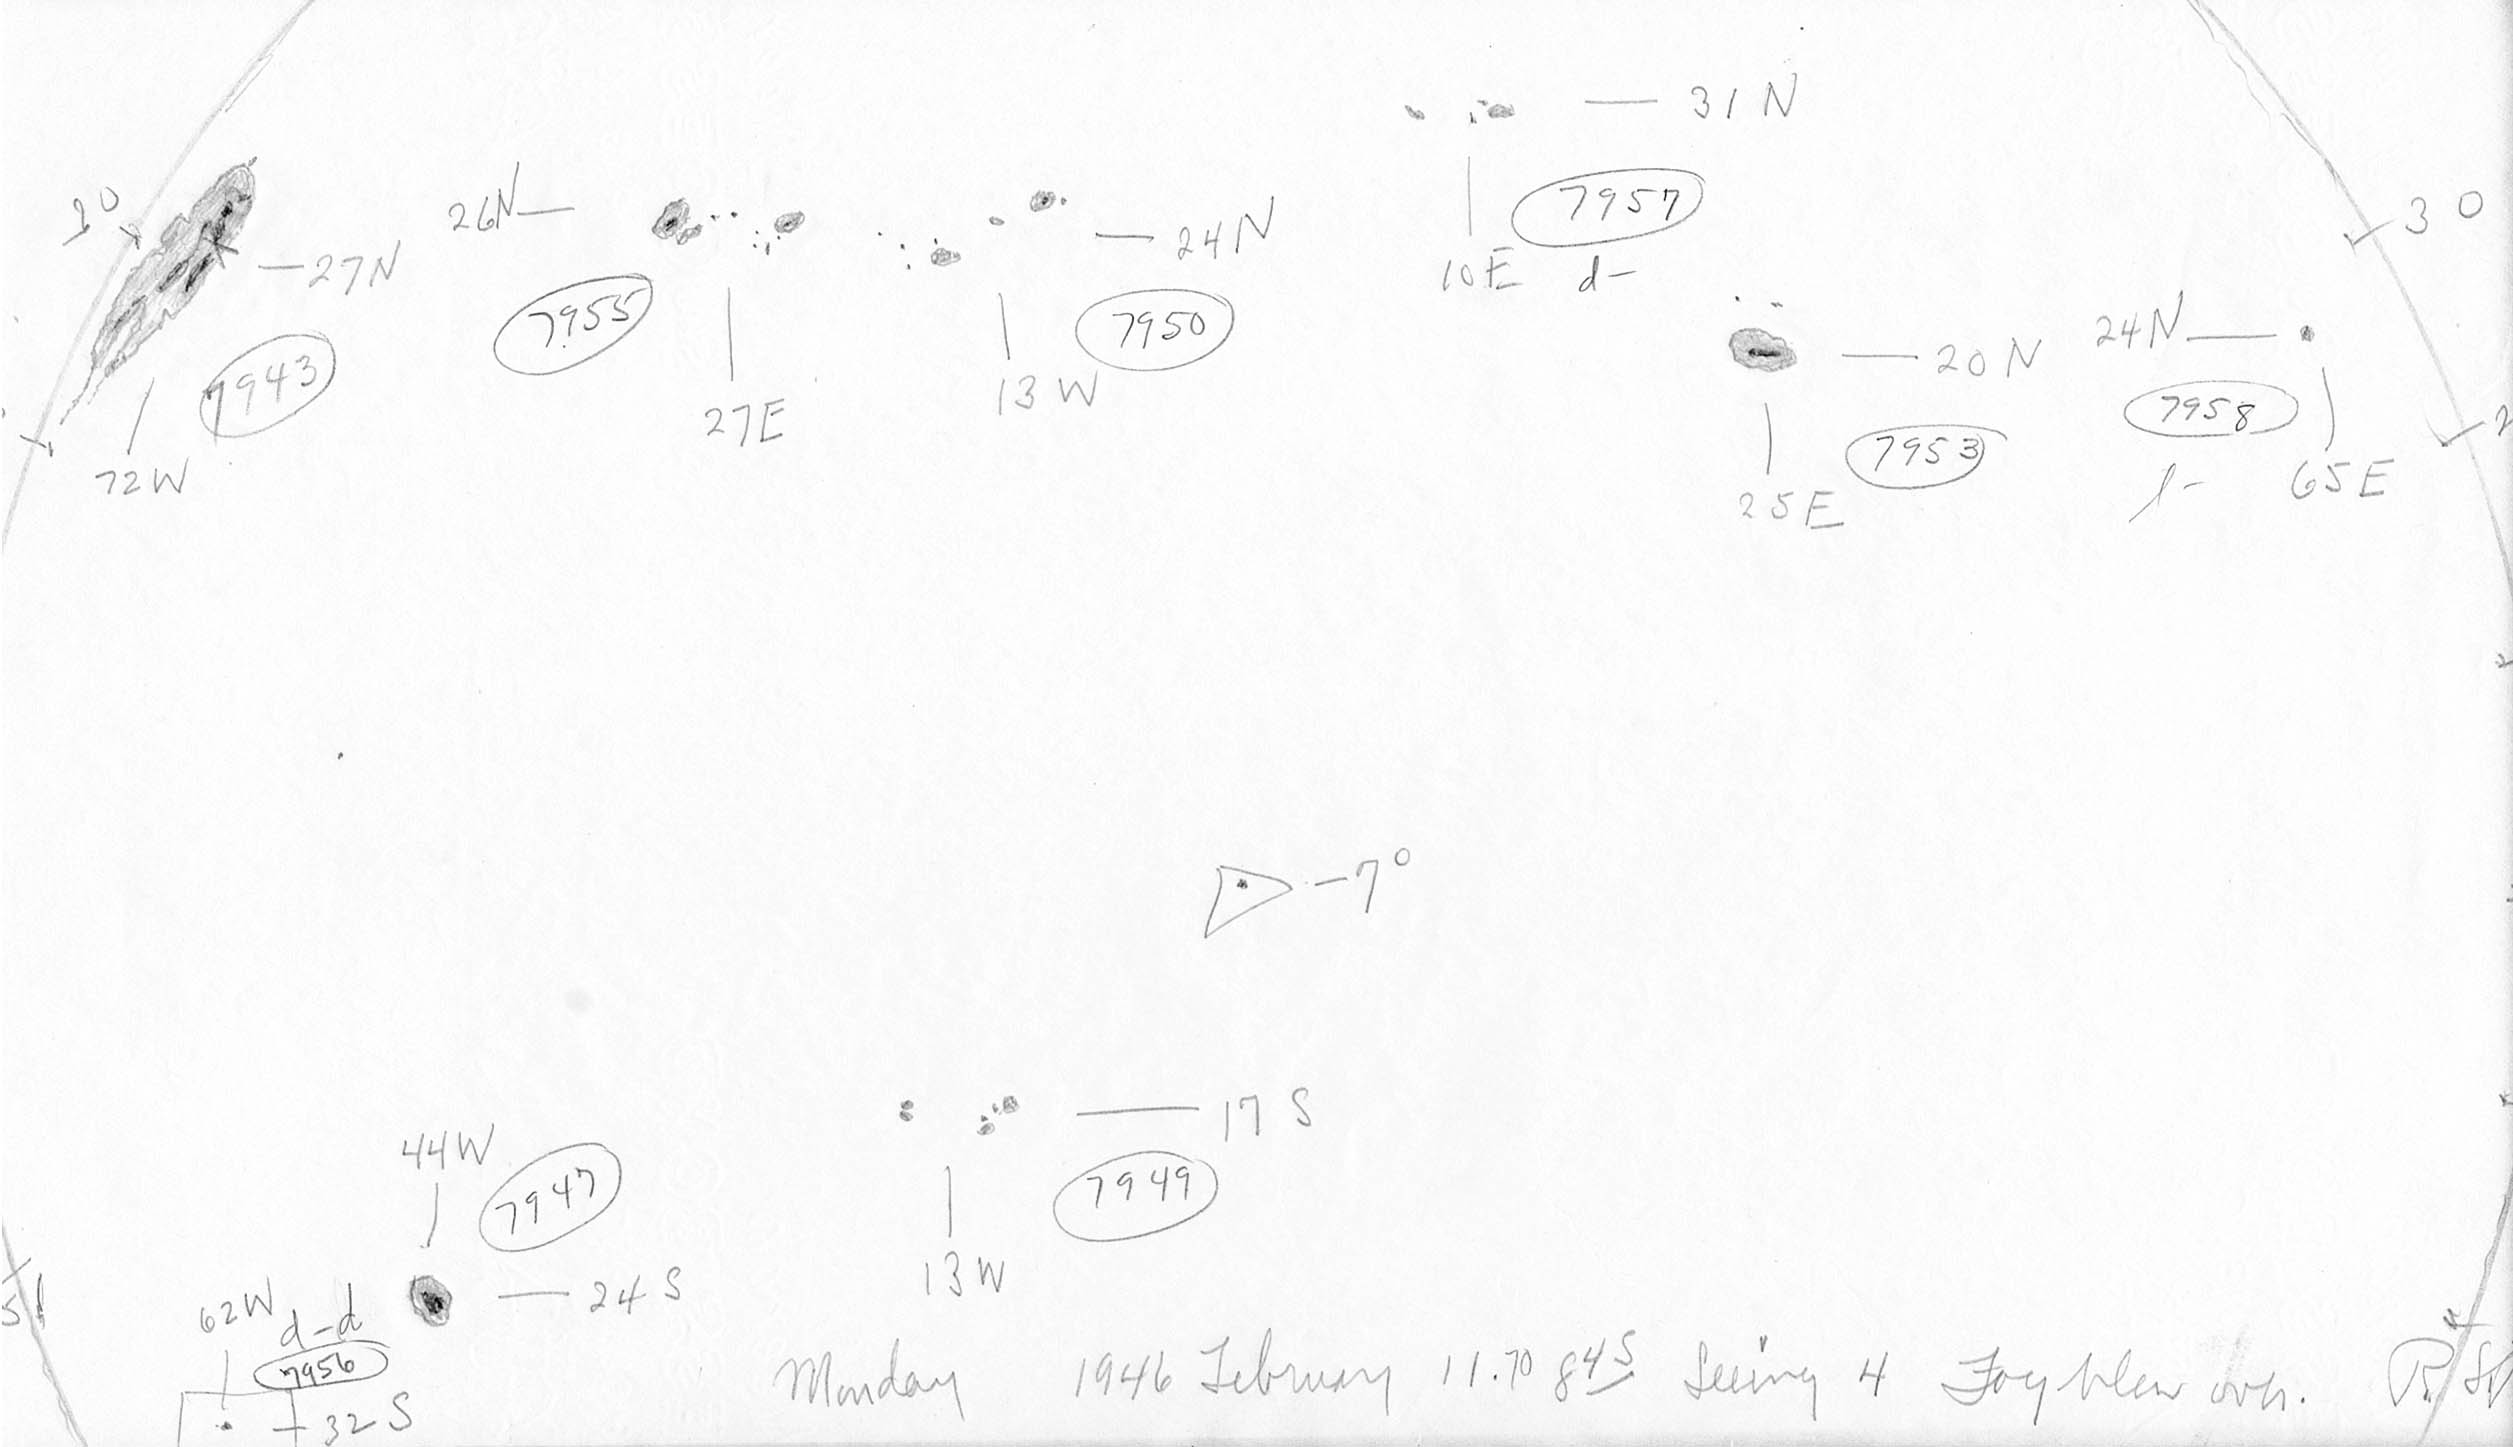 31 N
7957
10E
d-
30
27N
7943
72W
26N
7955
27E
24N
7950
13W
30
20N
7953
25E
24N
7958
l-
65E
-7°
17 S
7949
13W
44W
7947
24 S
62W
d-d
7956
32 S
Monday 1946 February 11.70 8 45 Seeing 4 Fog blew over.